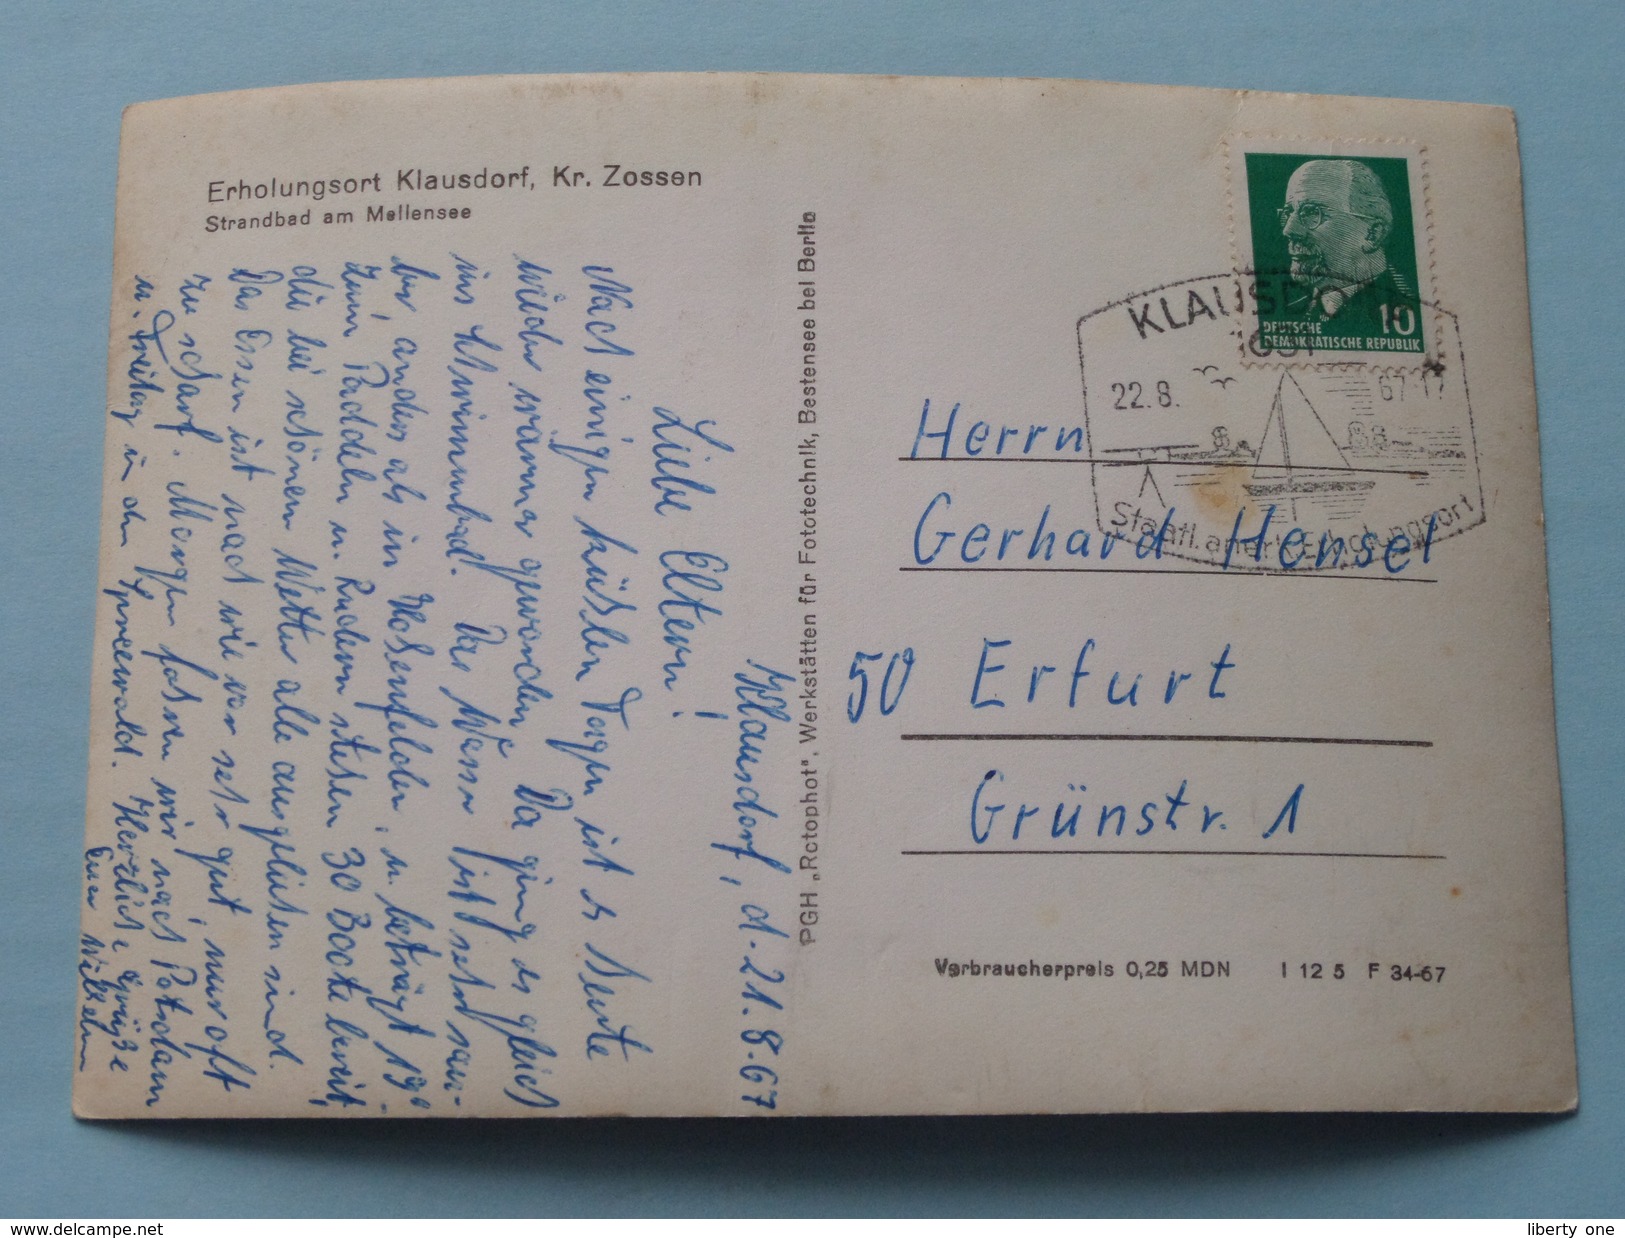 Erholungsort Klausdorf, Kr. Zossen
Strandbad am Mellensee
Klausdorf, d. 21.8.67
Liebe Eltern!
Nach einigen kühlen Tagen ist es heute
wieder wärmer geworden. Da ging es gleich
ins Schwimmbad. Das Wasser ist sehr sau-
ber, anders als in Hohenfelden, u. beträgt 19°.
Zum Paddeln u. Rudern stehen 30 Boote bereit,
die bei schönem Wetter alle ausgeliehen sind.
Das Essen ist nach wie vor sehr gut, nur oft
zu scharf. Morgen fahren wir nach Potsdam
u. Freitag in den Spreewald. Herzliche Grüße
Euer Wilhelm
PGH „Rotophot", Werkstätten für Fototechnik, Bestensee bei Berlin
10
DEUTSCHE
DEMOKRATISCHE REPUBLIK
KLAUSDORF
1631
22.8. 67-17
Staatl. anerk. Erholungsort
Herrn
Gerhard Hensel
50 Erfurt
Grünstr. 1
Verbraucherpreis 0,25 MDN I 12 5 F 34-67
www.delcampe.net
liberty one